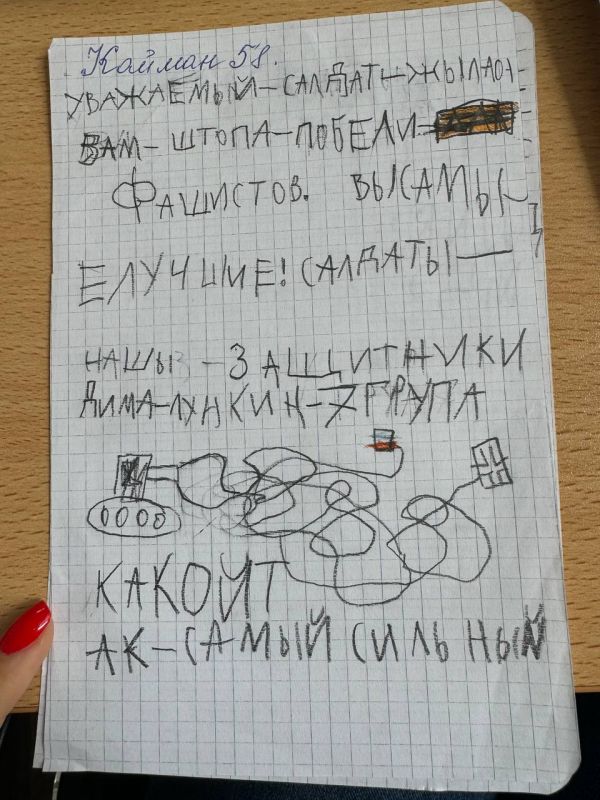 Кайман 58.
УВАЖАЕМЫЙ-САЛДАТ-ЖЫЛАЮ
ВАМ-ШТОПА-ПОБЕЛИ
ФАШИСТОВ. ВЫСАМЫ
ЕЛУЧШИЕ! САЛДАТЫ-
НАШЫ-ЗАЩИТНИКИ
ДИМА-ЛУНКИН-7 ГРУПА
КАКОЙТ
АК-САМЫЙ СИЛЬНЫЙ